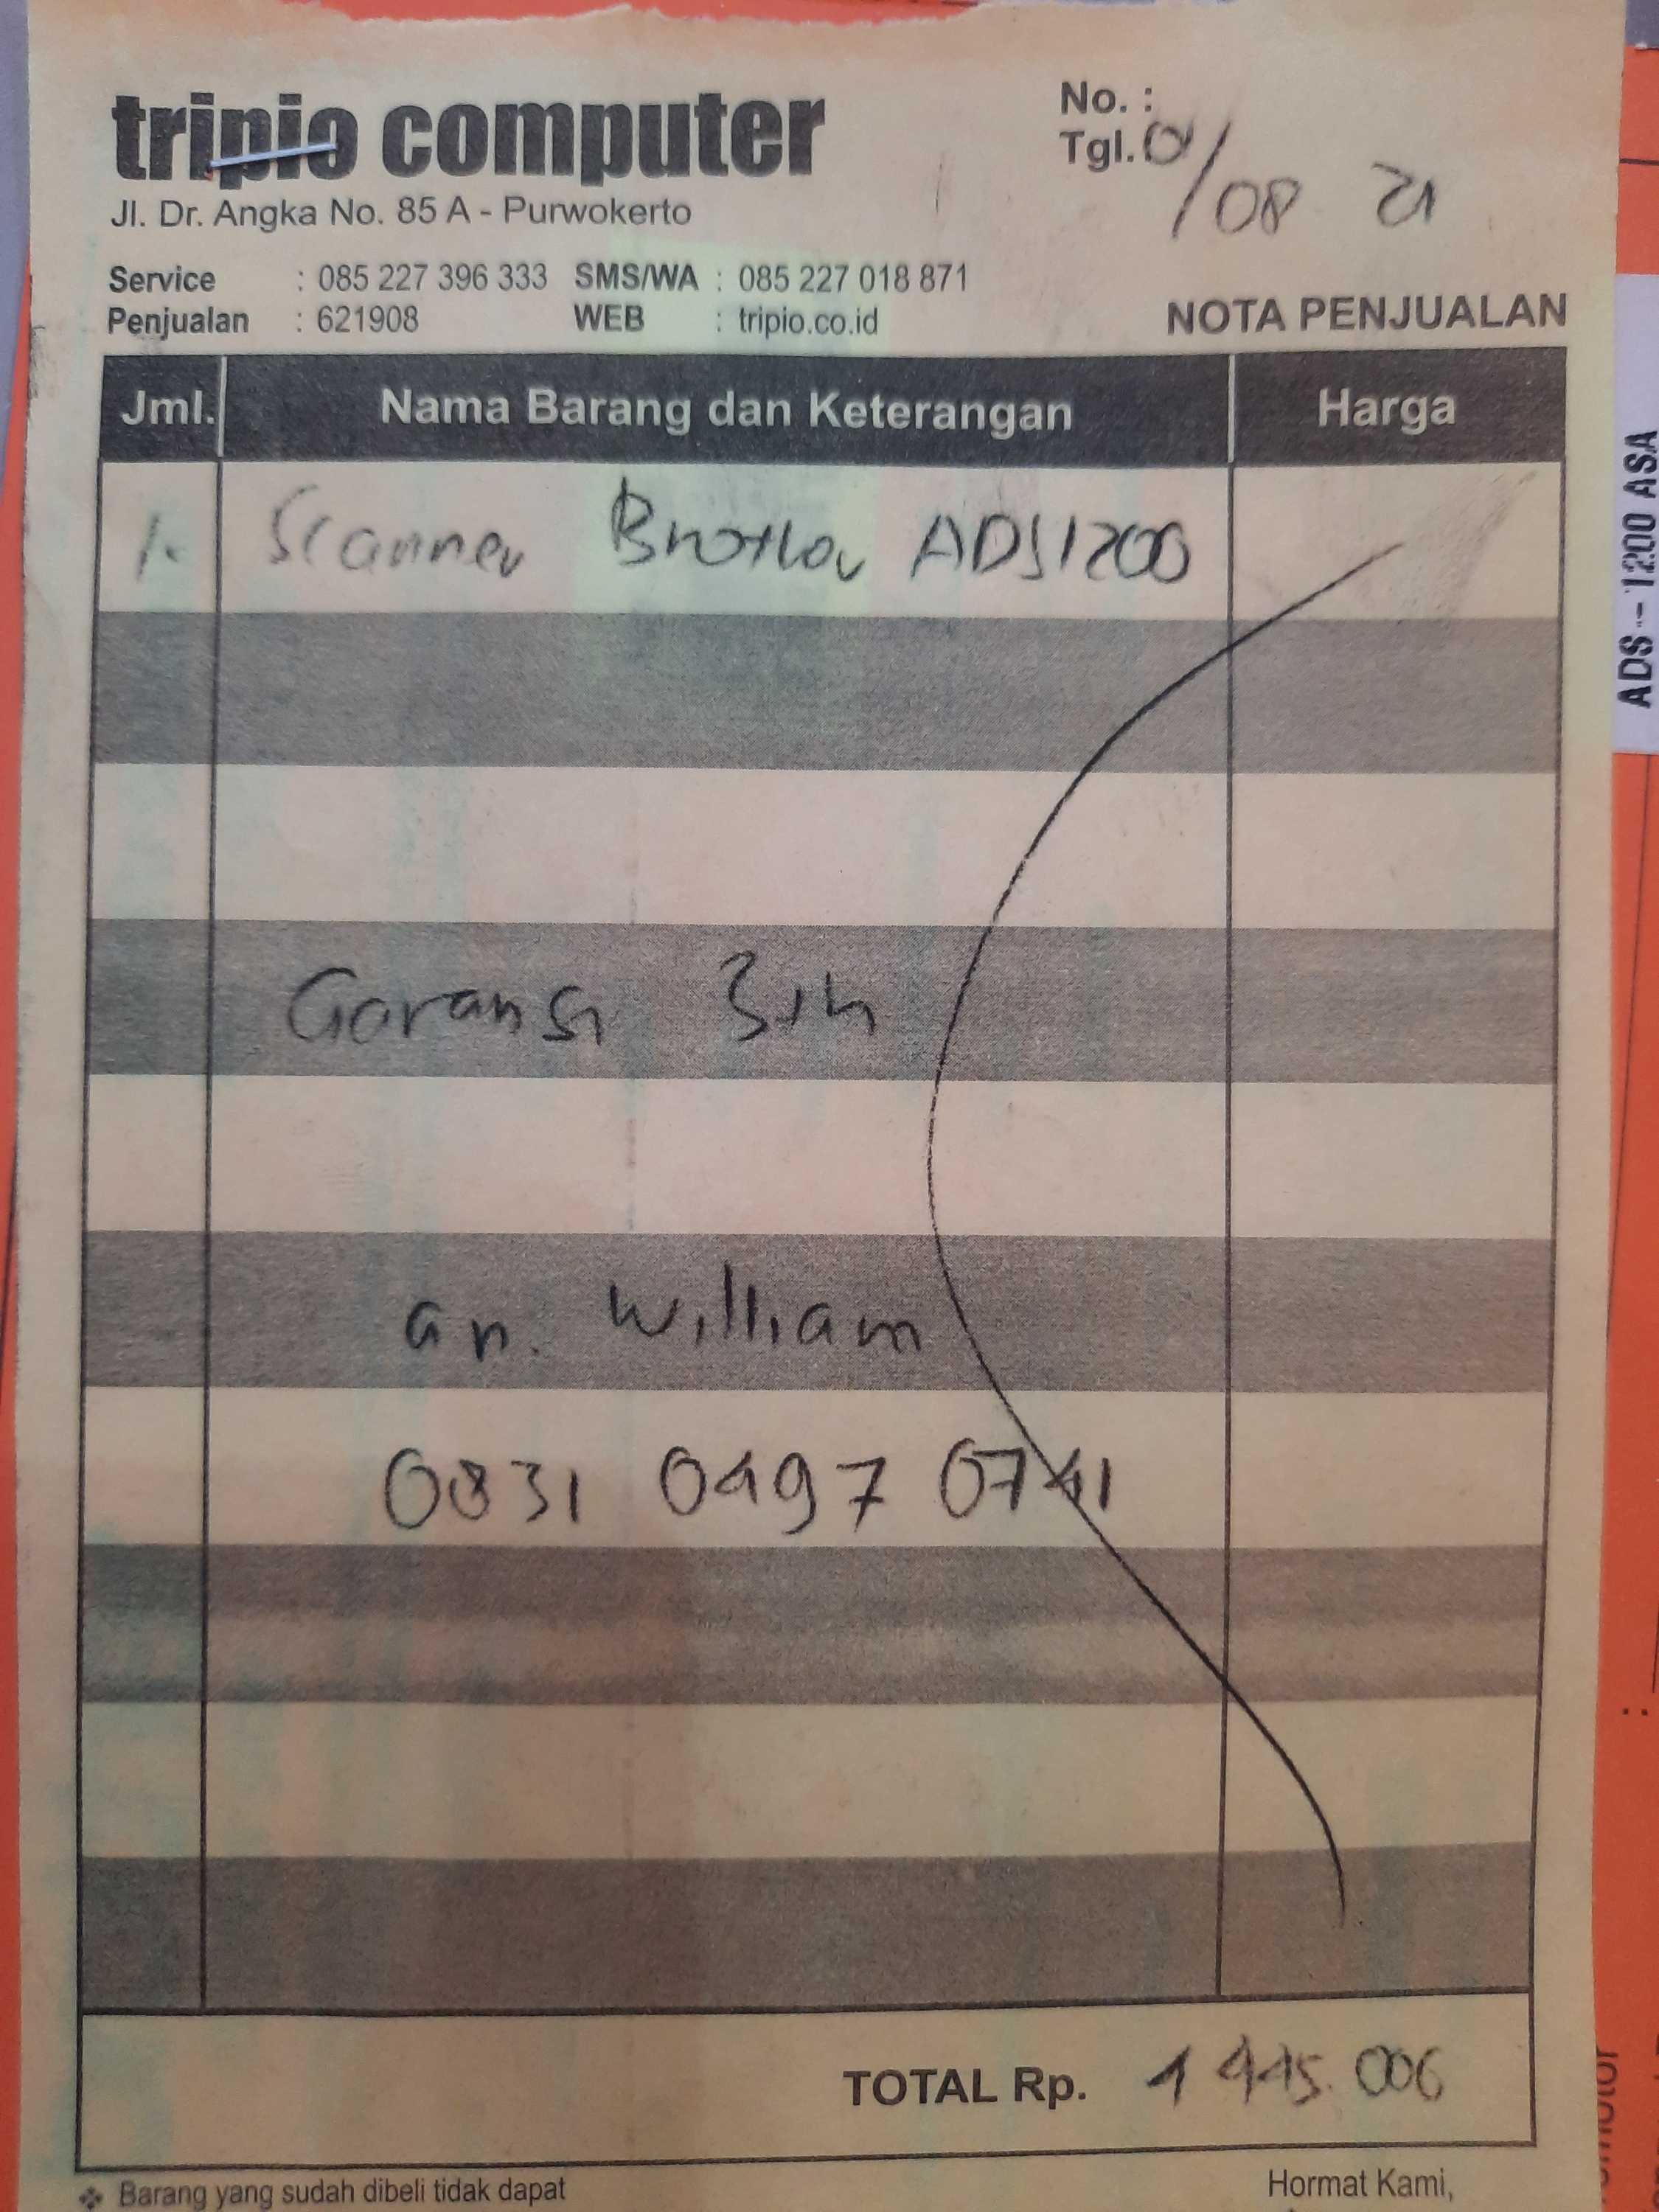 tripio computer
No. :
Tgl. 01/08 21
Jl. Dr. Angka No. 85 A - Purwokerto
Service : 085 227 396 333 SMS/WA : 085 227 018 871
Penjualan : 621908 WEB : tripio.co.id
NOTA PENJUALAN
Jml. Nama Barang dan Keterangan Harga
1. Scanner Brother ADS1200
Garansi 3th
an. William
0831 0497 0741
TOTAL Rp.
Barang yang sudah dibeli tidak dapat
Hormat Kami,
ADS - 1200 ASA